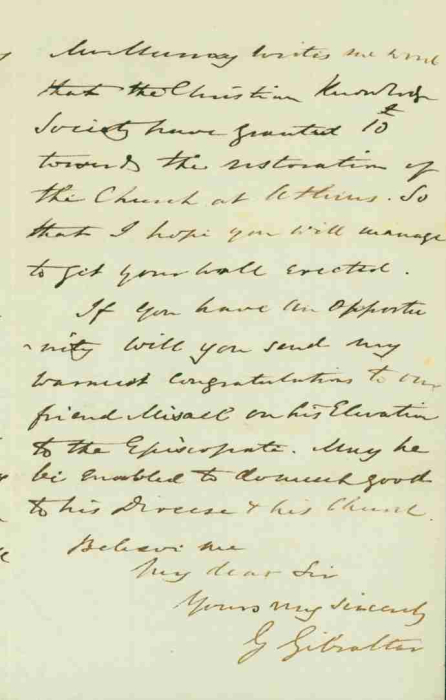 Mr Murray writes me word
that the Christian Knowledge
Society have granted 10£
towards the restoration of
the Church at Athens. So
that I hope you will manage
to get your wall erected.
If you have an opportu
-nity will you send my
warmest congratulations to our
friend Misael on his Elevation
to the Episcopate. May he
be enabled to do much good
to his Diocese & his Church.
Believe me
My dear Sir
Yours very sincerely
G Gibraltar